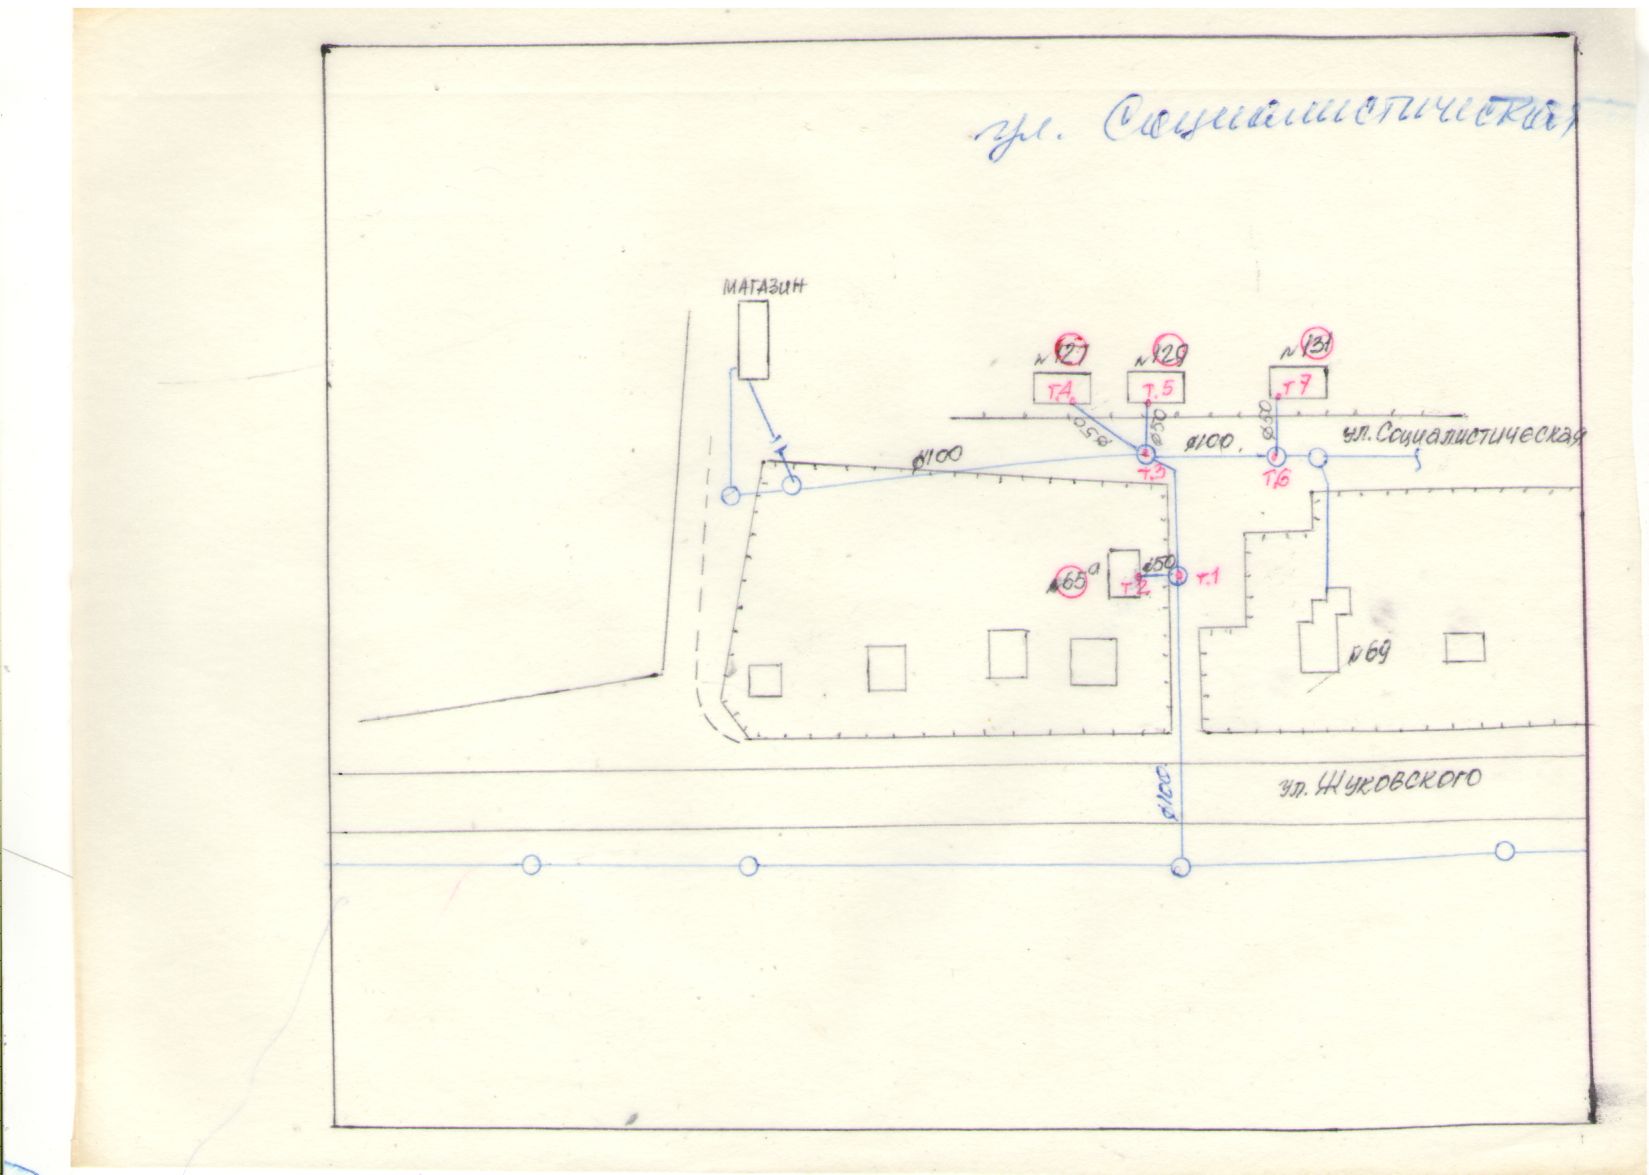 ул. Социалистическая
МАГАЗИН
№127
№129
№131
т.4
т.5
т7
ø50
ø50
ø50
ø100
ø100.
ул. Социалистическая
т.3
т.6
№65а
т2
ø50
т.1
№69
ø100.
ул. Жуковского